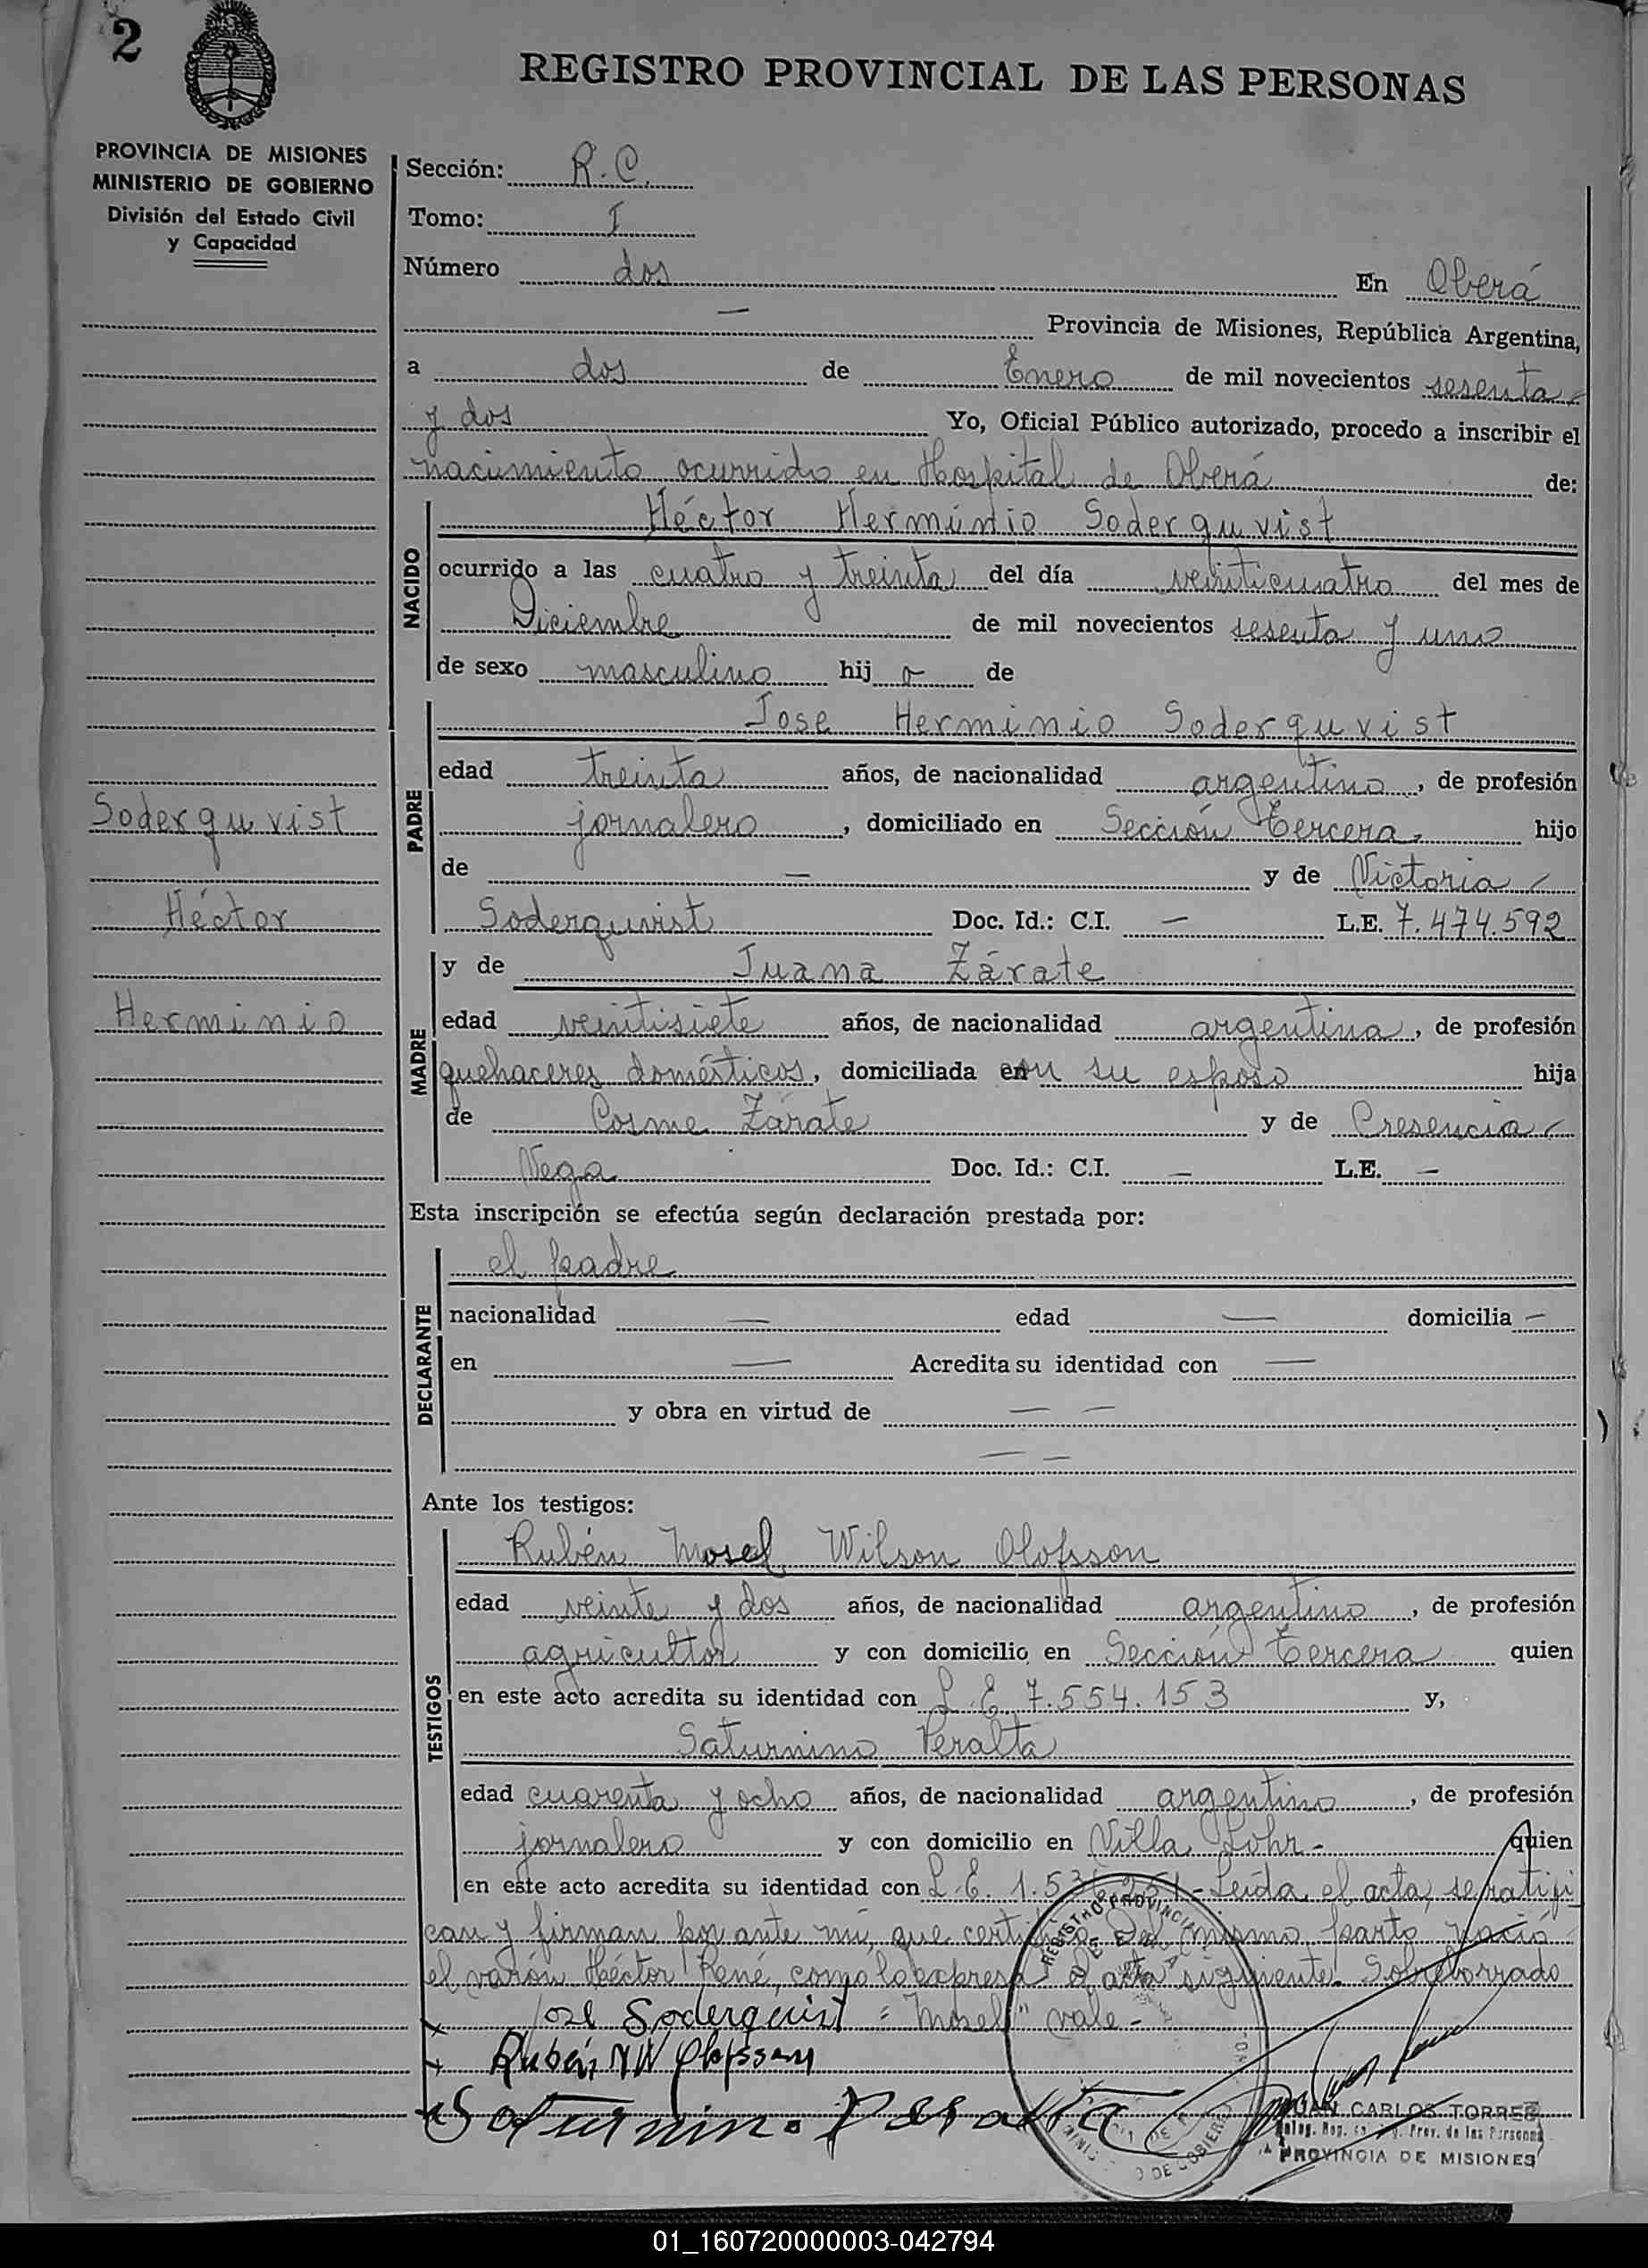 2
REGISTRO PROVINCIAL DE LAS PERSONAS
PROVINCIA DE MISIONES
MINISTERIO DE GOBIERNO
División del Estado Civil
y Capacidad
Sección: R. C.
Tomo: I
Número dos En Oberá
— Provincia de Misiones, República Argentina,
a dos de Enero de mil novecientos sesenta
y dos Yo, Oficial Público autorizado, procedo a inscribir el
nacimiento ocurrido en Hospital de Oberá de:
Héctor Hermínio Soderquvist
NACIDO
ocurrido a las cuatro y treinta del día veinticuatro del mes de
Diciembre de mil novecientos sesenta y uno
de sexo masculino hij o de
Jose Herminio Soderquvist
PADRE
edad treinta años, de nacionalidad argentino, de profesión
jornalero, domiciliado en Sección Tercera, hijo
de — y de Victoria
Soderquvist Doc. Id.: C.I. — L.E. 7.474.592
Soderquvist
Héctor
Herminio
y de Juana Zárate
MADRE
edad veintisiete años, de nacionalidad argentina, de profesión
quehaceres domésticos, domiciliada en su esposo hija
de Cosme Zárate y de Cresencia
Vega Doc. Id.: C.I. — L.E. —
Esta inscripción se efectúa según declaración prestada por:
el padre
DECLARANTE
nacionalidad — edad — domicilia —
en — Acredita su identidad con —
y obra en virtud de — —
— —
Ante los testigos:
Rubén Mosel Wilson Olofsson
TESTIGOS
edad veinte y dos años, de nacionalidad argentino, de profesión
agricultor y con domicilio en Sección Tercera quien
en este acto acredita su identidad con L.E. 7.554.153 y,
Saturnino Peralta
edad cuarenta y ocho años, de nacionalidad argentino, de profesión
jornalero y con domicilio en Villa Lohr - quien
en este acto acredita su identidad con L.E. - Leída el acta, se ratifi
can y firman por ante mí, que certifico. Del mismo parto nació
el varón Héctor René, como lo expresa el acta siguiente. Sobreborrado
José Soderquist = "Mosel" vale -
Rubén M W Olofsson
Saturnino Peralta
REGISTRO PROVINCIAL DE LAS
JUAN CARLOS TORRES
Prov. de las Personas
PROVINCIA DE MISIONES
01_160720000003-042794